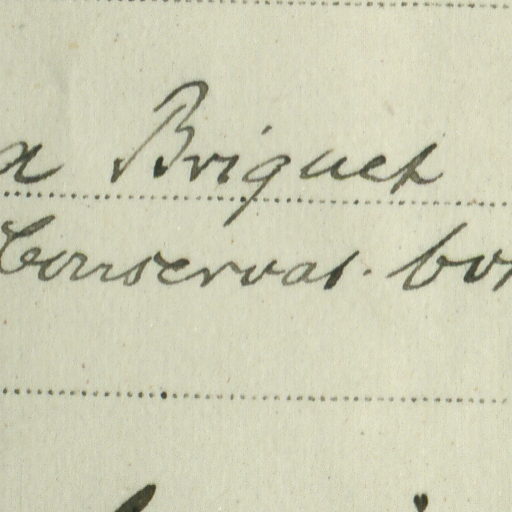 x Briquet
Conservat. bo